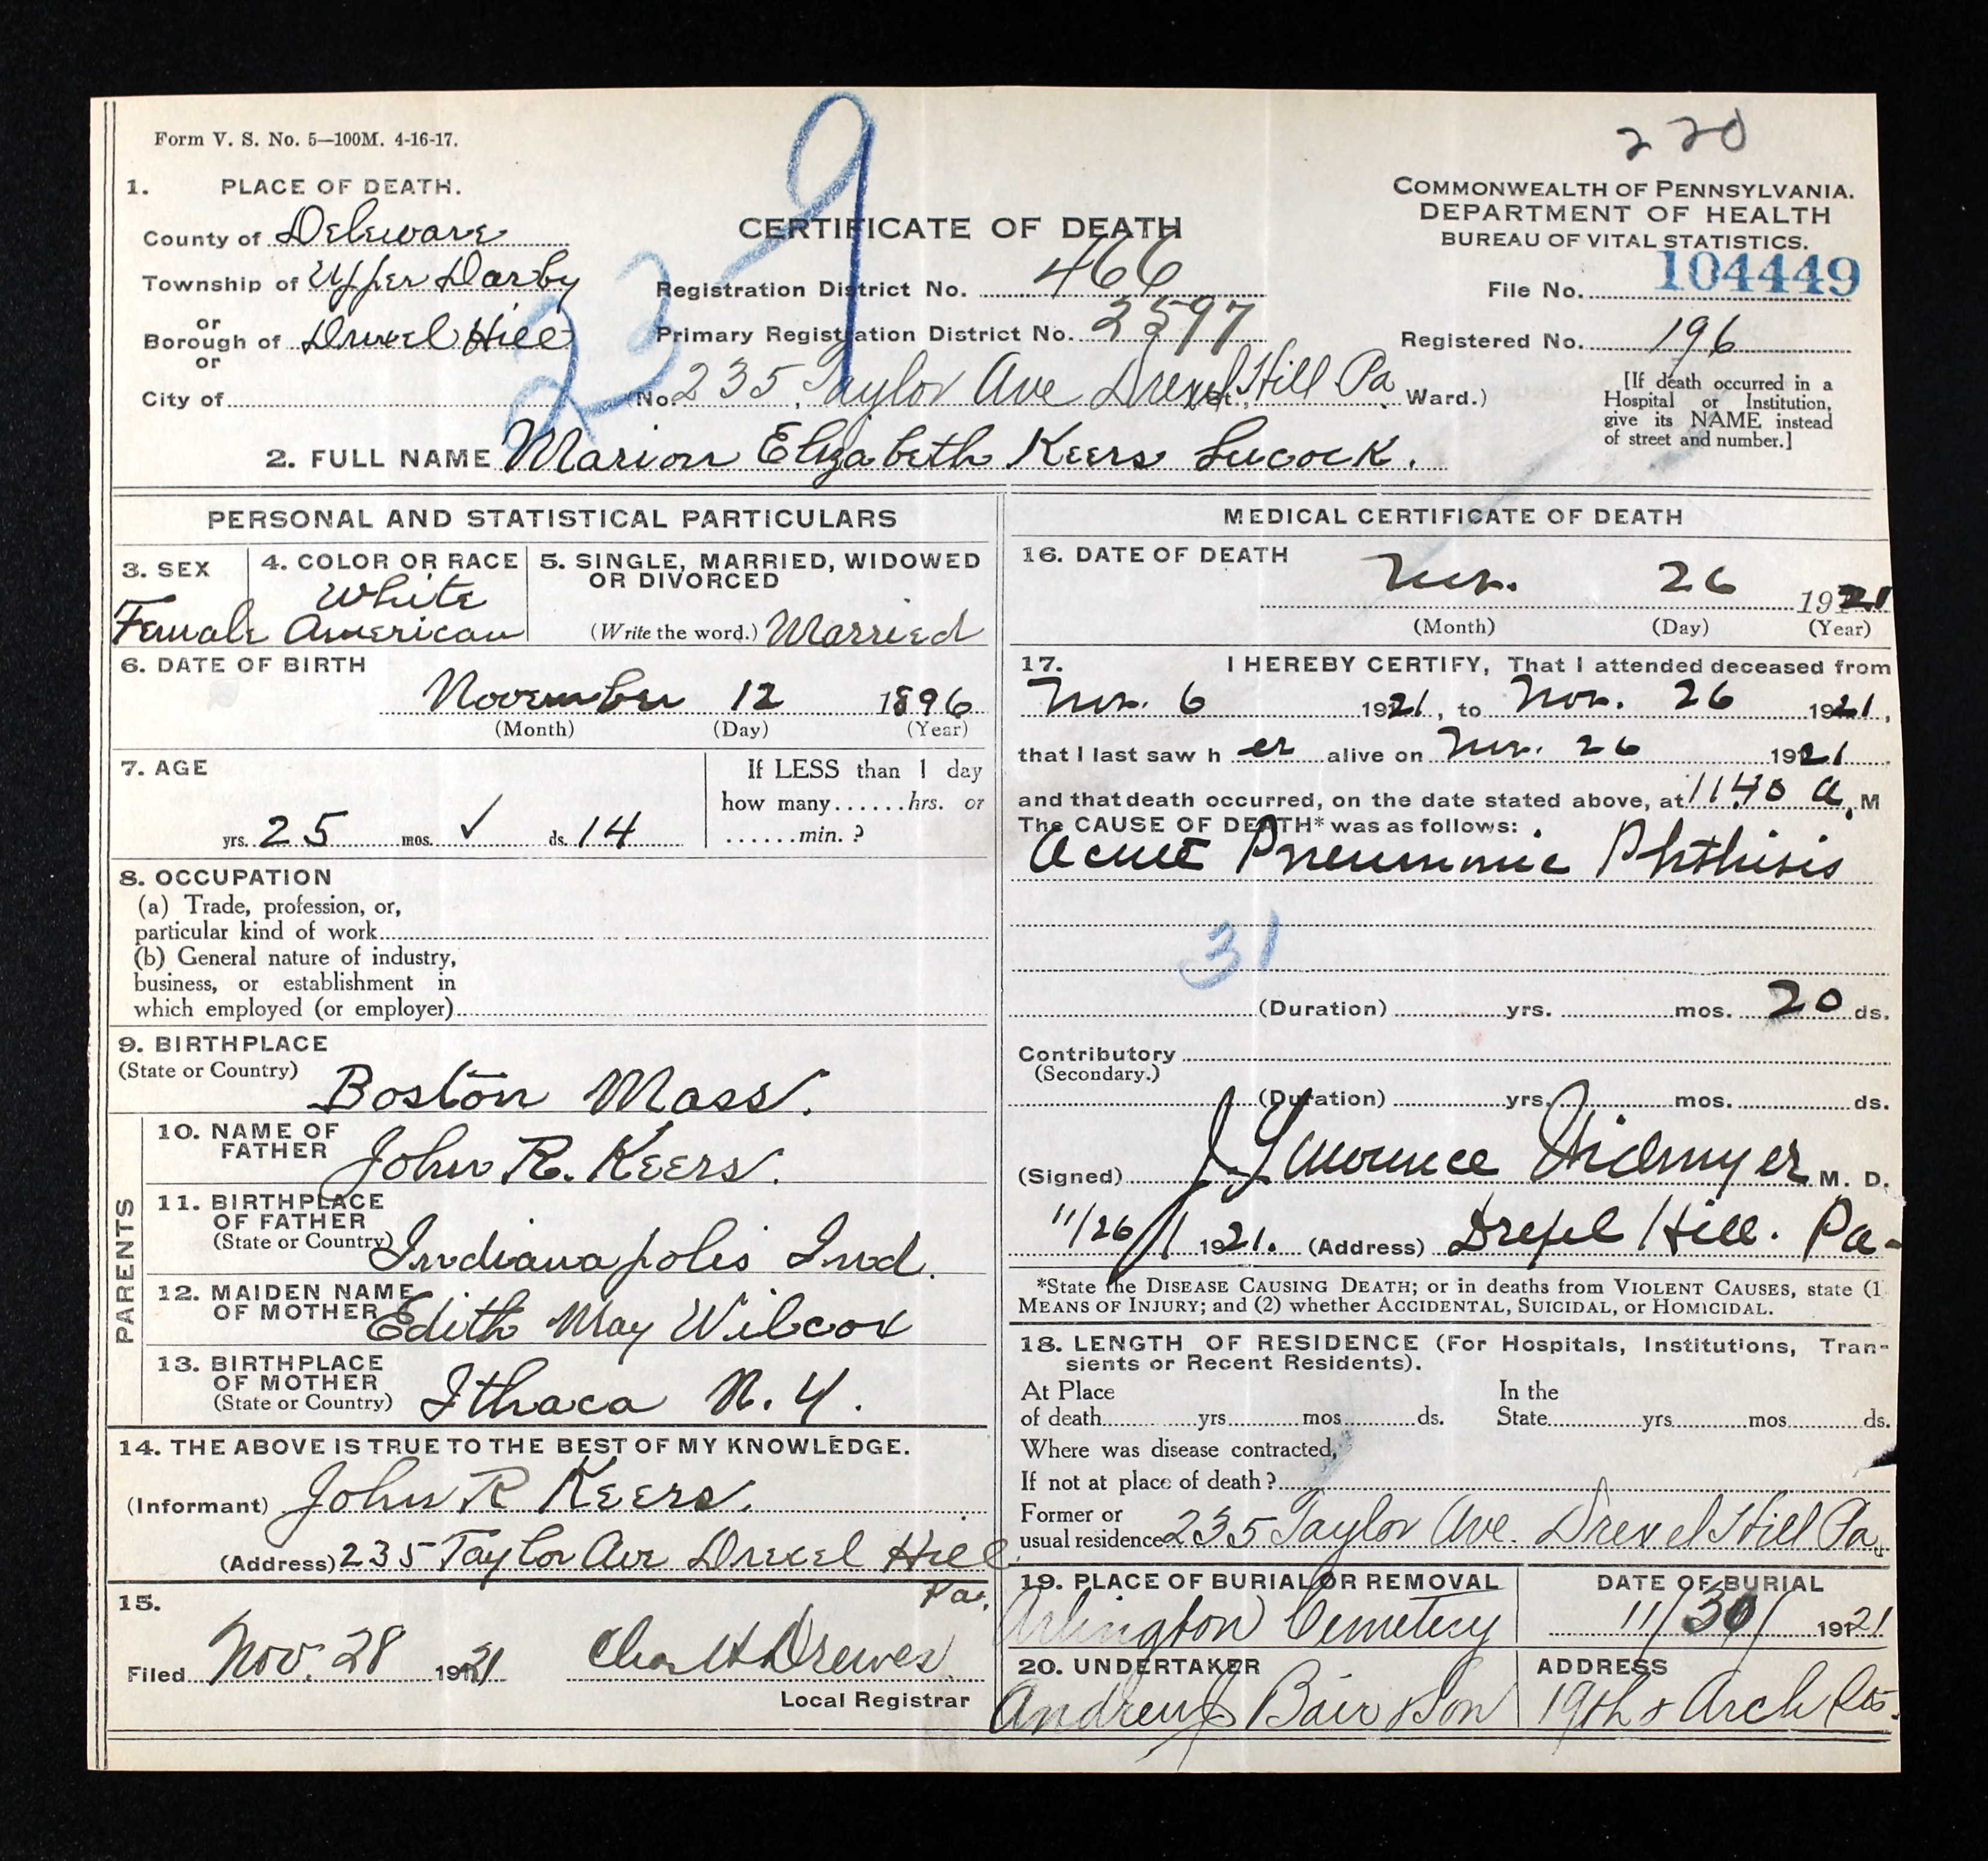 220
Form V. S. No. 5—100M. 4-16-17.
1. PLACE OF DEATH.
County of Deleware
Township of Upper Darby
or
Borough of Drexel Hill
or
City of
239
CERTIFICATE OF DEATH
Registration District No. 466
Primary Registration District No. 2597
(No. 235, Taylor Ave Drexel Hill Pa St., Ward.)
COMMONWEALTH OF PENNSYLVANIA.
DEPARTMENT OF HEALTH
BUREAU OF VITAL STATISTICS.
File No. 104449
Registered No. 196
[If death occurred in a
Hospital or Institution,
give its NAME instead
of street and number.]
2. FULL NAME Marion Elizabeth Keers Lucock.
PERSONAL AND STATISTICAL PARTICULARS
3. SEX
Female
4. COLOR OR RACE
White
American
5. SINGLE, MARRIED, WIDOWED
OR DIVORCED
(Write the word.) Married
6. DATE OF BIRTH
November 12 1896
(Month) (Day) (Year)
7. AGE
yrs. 25 mos. ✓ ds. 14
If LESS than 1 day
how many......hrs. or
......min. ?
8. OCCUPATION
(a) Trade, profession, or,
particular kind of work
(b) General nature of industry,
business, or establishment in
which employed (or employer)
9. BIRTHPLACE
(State or Country)
Boston Mass.
PARENTS
10. NAME OF
FATHER
John R. Keers.
11. BIRTHPLACE
OF FATHER
(State or Country)
Indianapolis Ind.
12. MAIDEN NAME
OF MOTHER
Edith May Wilcox
13. BIRTHPLACE
OF MOTHER
(State or Country)
Ithaca N.Y.
14. THE ABOVE IS TRUE TO THE BEST OF MY KNOWLEDGE.
(Informant) John R Keers.
(Address) 235 Taylor Ave Drexel Hill
Pa.
15.
Filed Nov. 28 1921 Chas H Drewes
Local Registrar
MEDICAL CERTIFICATE OF DEATH
16. DATE OF DEATH
Nov. 26 1921
(Month) (Day) (Year)
17. I HEREBY CERTIFY, That I attended deceased from
Nov. 6 1921, to Nov. 26 1921,
that I last saw h er alive on Nov. 26 1921.
and that death occurred, on the date stated above, at 11.40 a. M
The CAUSE OF DEATH* was as follows:
Acute Pneumonic Phthisis
31
(Duration) yrs. mos. 20 ds.
Contributory
(Secondary.)
(Duration) yrs. mos. ds.
(Signed) J. Lawrence M. D.
11/26/1921. (Address) Drexel Hill. Pa-
*State the DISEASE CAUSING DEATH; or in deaths from VIOLENT CAUSES, state (1
MEANS OF INJURY; and (2) whether ACCIDENTAL, SUICIDAL, or HOMICIDAL.
18. LENGTH OF RESIDENCE (For Hospitals, Institutions, Tran-
sients or Recent Residents).
At Place
of death yrs mos ds.
In the
State yrs mos ds.
Where was disease contracted,
If not at place of death?
Former or
usual residence 235 Taylor Ave. Drexel Hill Pa.
19. PLACE OF BURIAL OR REMOVAL
Arlington Cemetery
DATE OF BURIAL
11/30/1921
20. UNDERTAKER
Andrew J Bair & Son
ADDRESS
19th & Arch Sts.